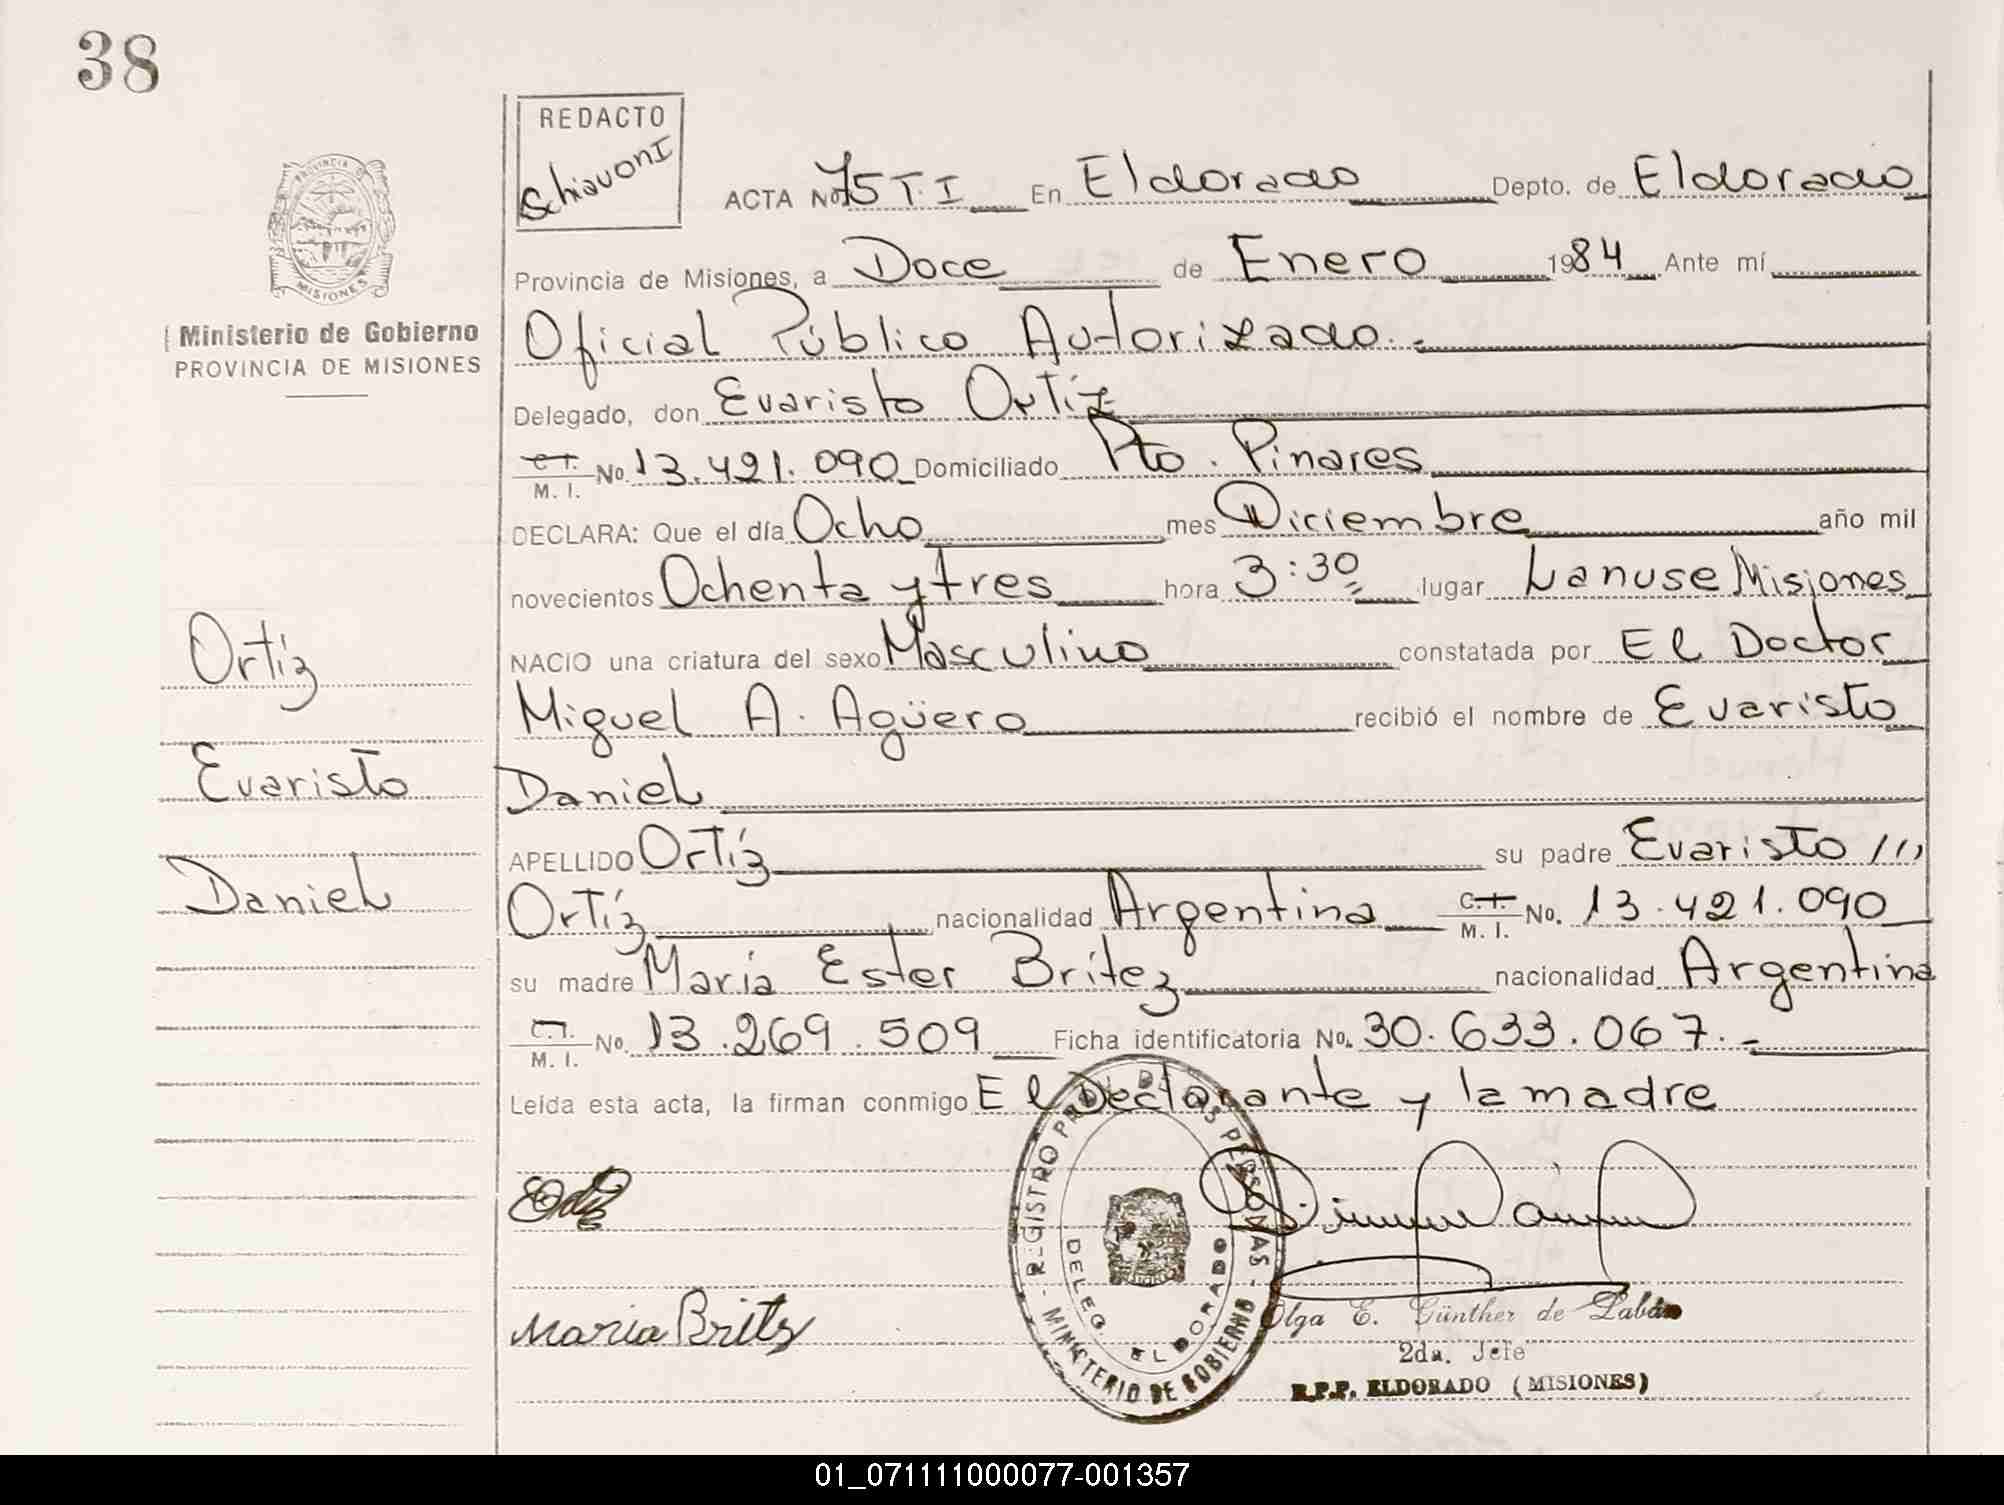 38
REDACTO
Schiavoni
ACTA No. 75 T. I En Eldorado Depto. de Eldorado
PROVINCIA
MISIONES
Provincia de Misiones, a Doce de Enero 1984 Ante mí
Ministerio de Gobierno
PROVINCIA DE MISIONES
Oficial Público Autorizado.-
Delegado, don Evaristo Ortíz
C. I. M. I. No. 13.421.090 Domiciliado Pto. Pinares
DECLARA: Que el día Ocho mes Diciembre año mil
novecientos Ochenta y tres hora 3:30 lugar Lanuse Misiones
NACIO una criatura del sexo Masculino constatada por El Doctor
Miguel A. Agüero recibió el nombre de Evaristo
Daniel
APELLIDO Ortíz su padre Evaristo ///
Ortíz nacionalidad Argentina C. I. M. I. No. 13.421.090
su madre María Ester Britez nacionalidad Argentina
C. I. M. I. No. 13.269.509 Ficha identificatoria No. 30.633.067.-
Leída esta acta, la firman conmigo El Declarante y la madre
Ortíz
Evaristo
Daniel
Maria Britz
REGISTRO PROV. DE LAS PERSONAS - MINISTERIO DE GOBIERNO -
DELEG. ELDORADO
Olga E. Günther de Labán
2da. Jefe
R.P.P. ELDORADO (MISIONES)
01_071111000077-001357